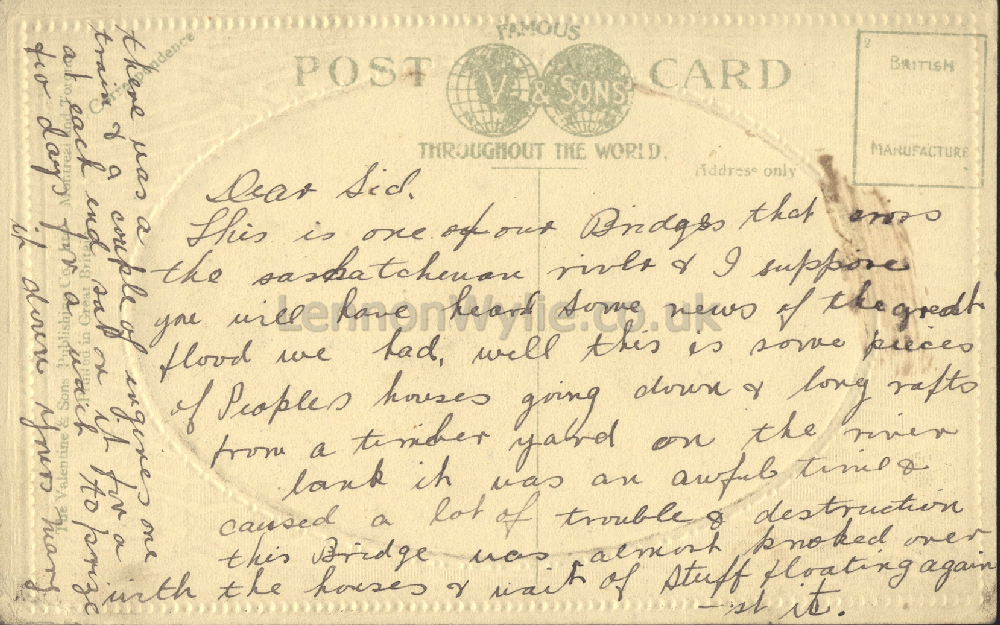 FAMOUS
POST CARD
V & SONS
THROUGHOUT THE WORLD.
BRITISH
MANUFACTURE
Correspondence
Address only
The Valentine & Sons Publishing Co. Montreal and Toronto
Printed in Great Britain
LennonWylie.co.uk
Dear Sid.
This is one of our Bridges that cross
the saskatchewan river & I suppose
you will have heard some news of the great
flood we had, well this is some pieces
of Peoples houses going down & long rafts
from a timber yard on the river
bank it was an awful time &
caused a lot of trouble & destruction
this Bridge was almost knoked over
with the houses & wait of stuff floating again
-st it.
there was a
train & a couple of ingines one
at each end sat on it for a
fiw days for a wait to prize
it down yours